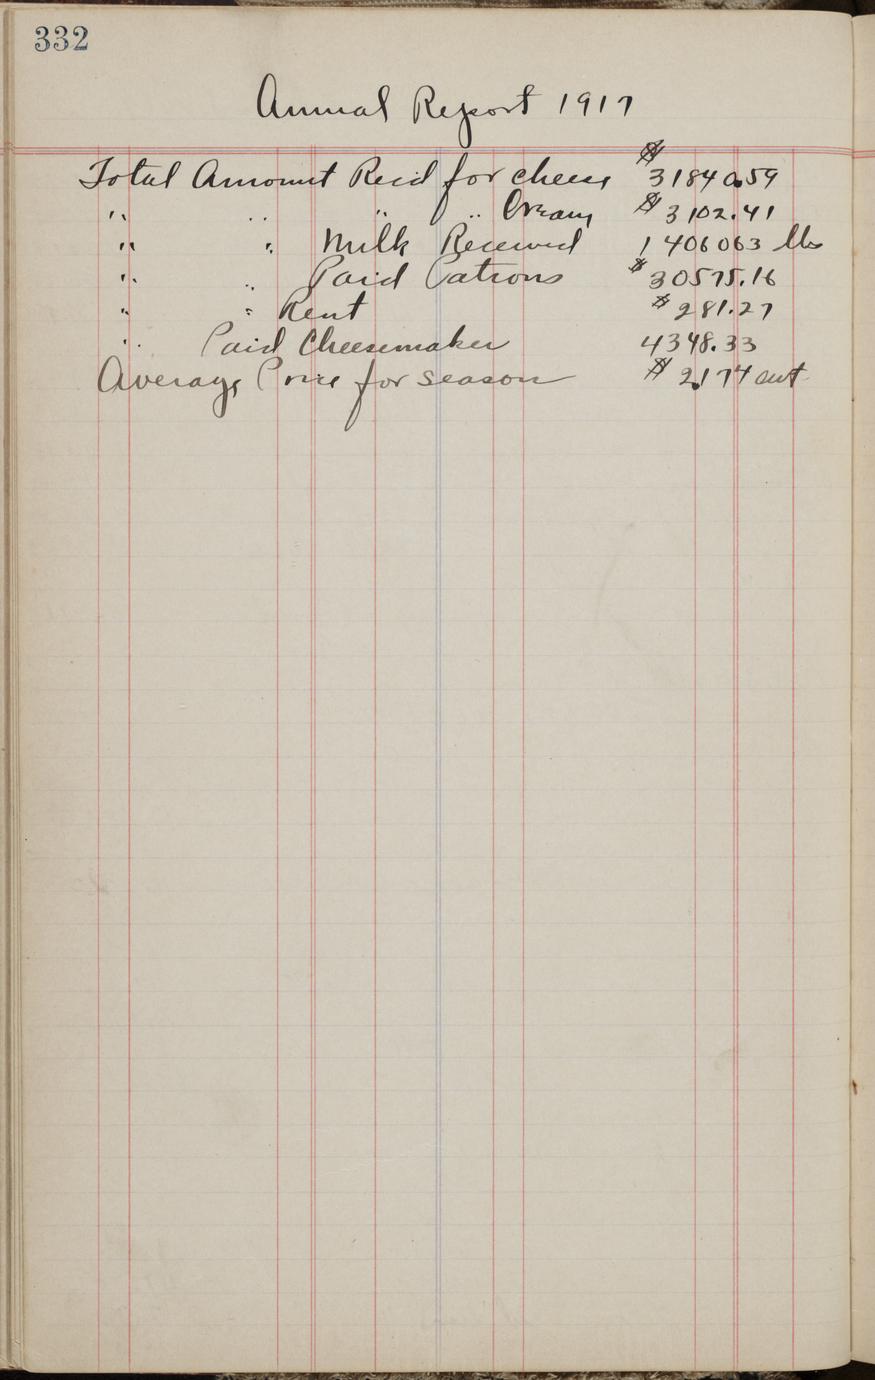 332
Annual Report 1917
Total Amount Recd for cheese $31840.59
" " " " Cream $3102.41
" " Milk Received 1406063 lbs
" " Paid Patrons $30575.16
" " Rent $281.27
" Paid Cheesemaker 4348.33
Average Price for season $2.174 cwt